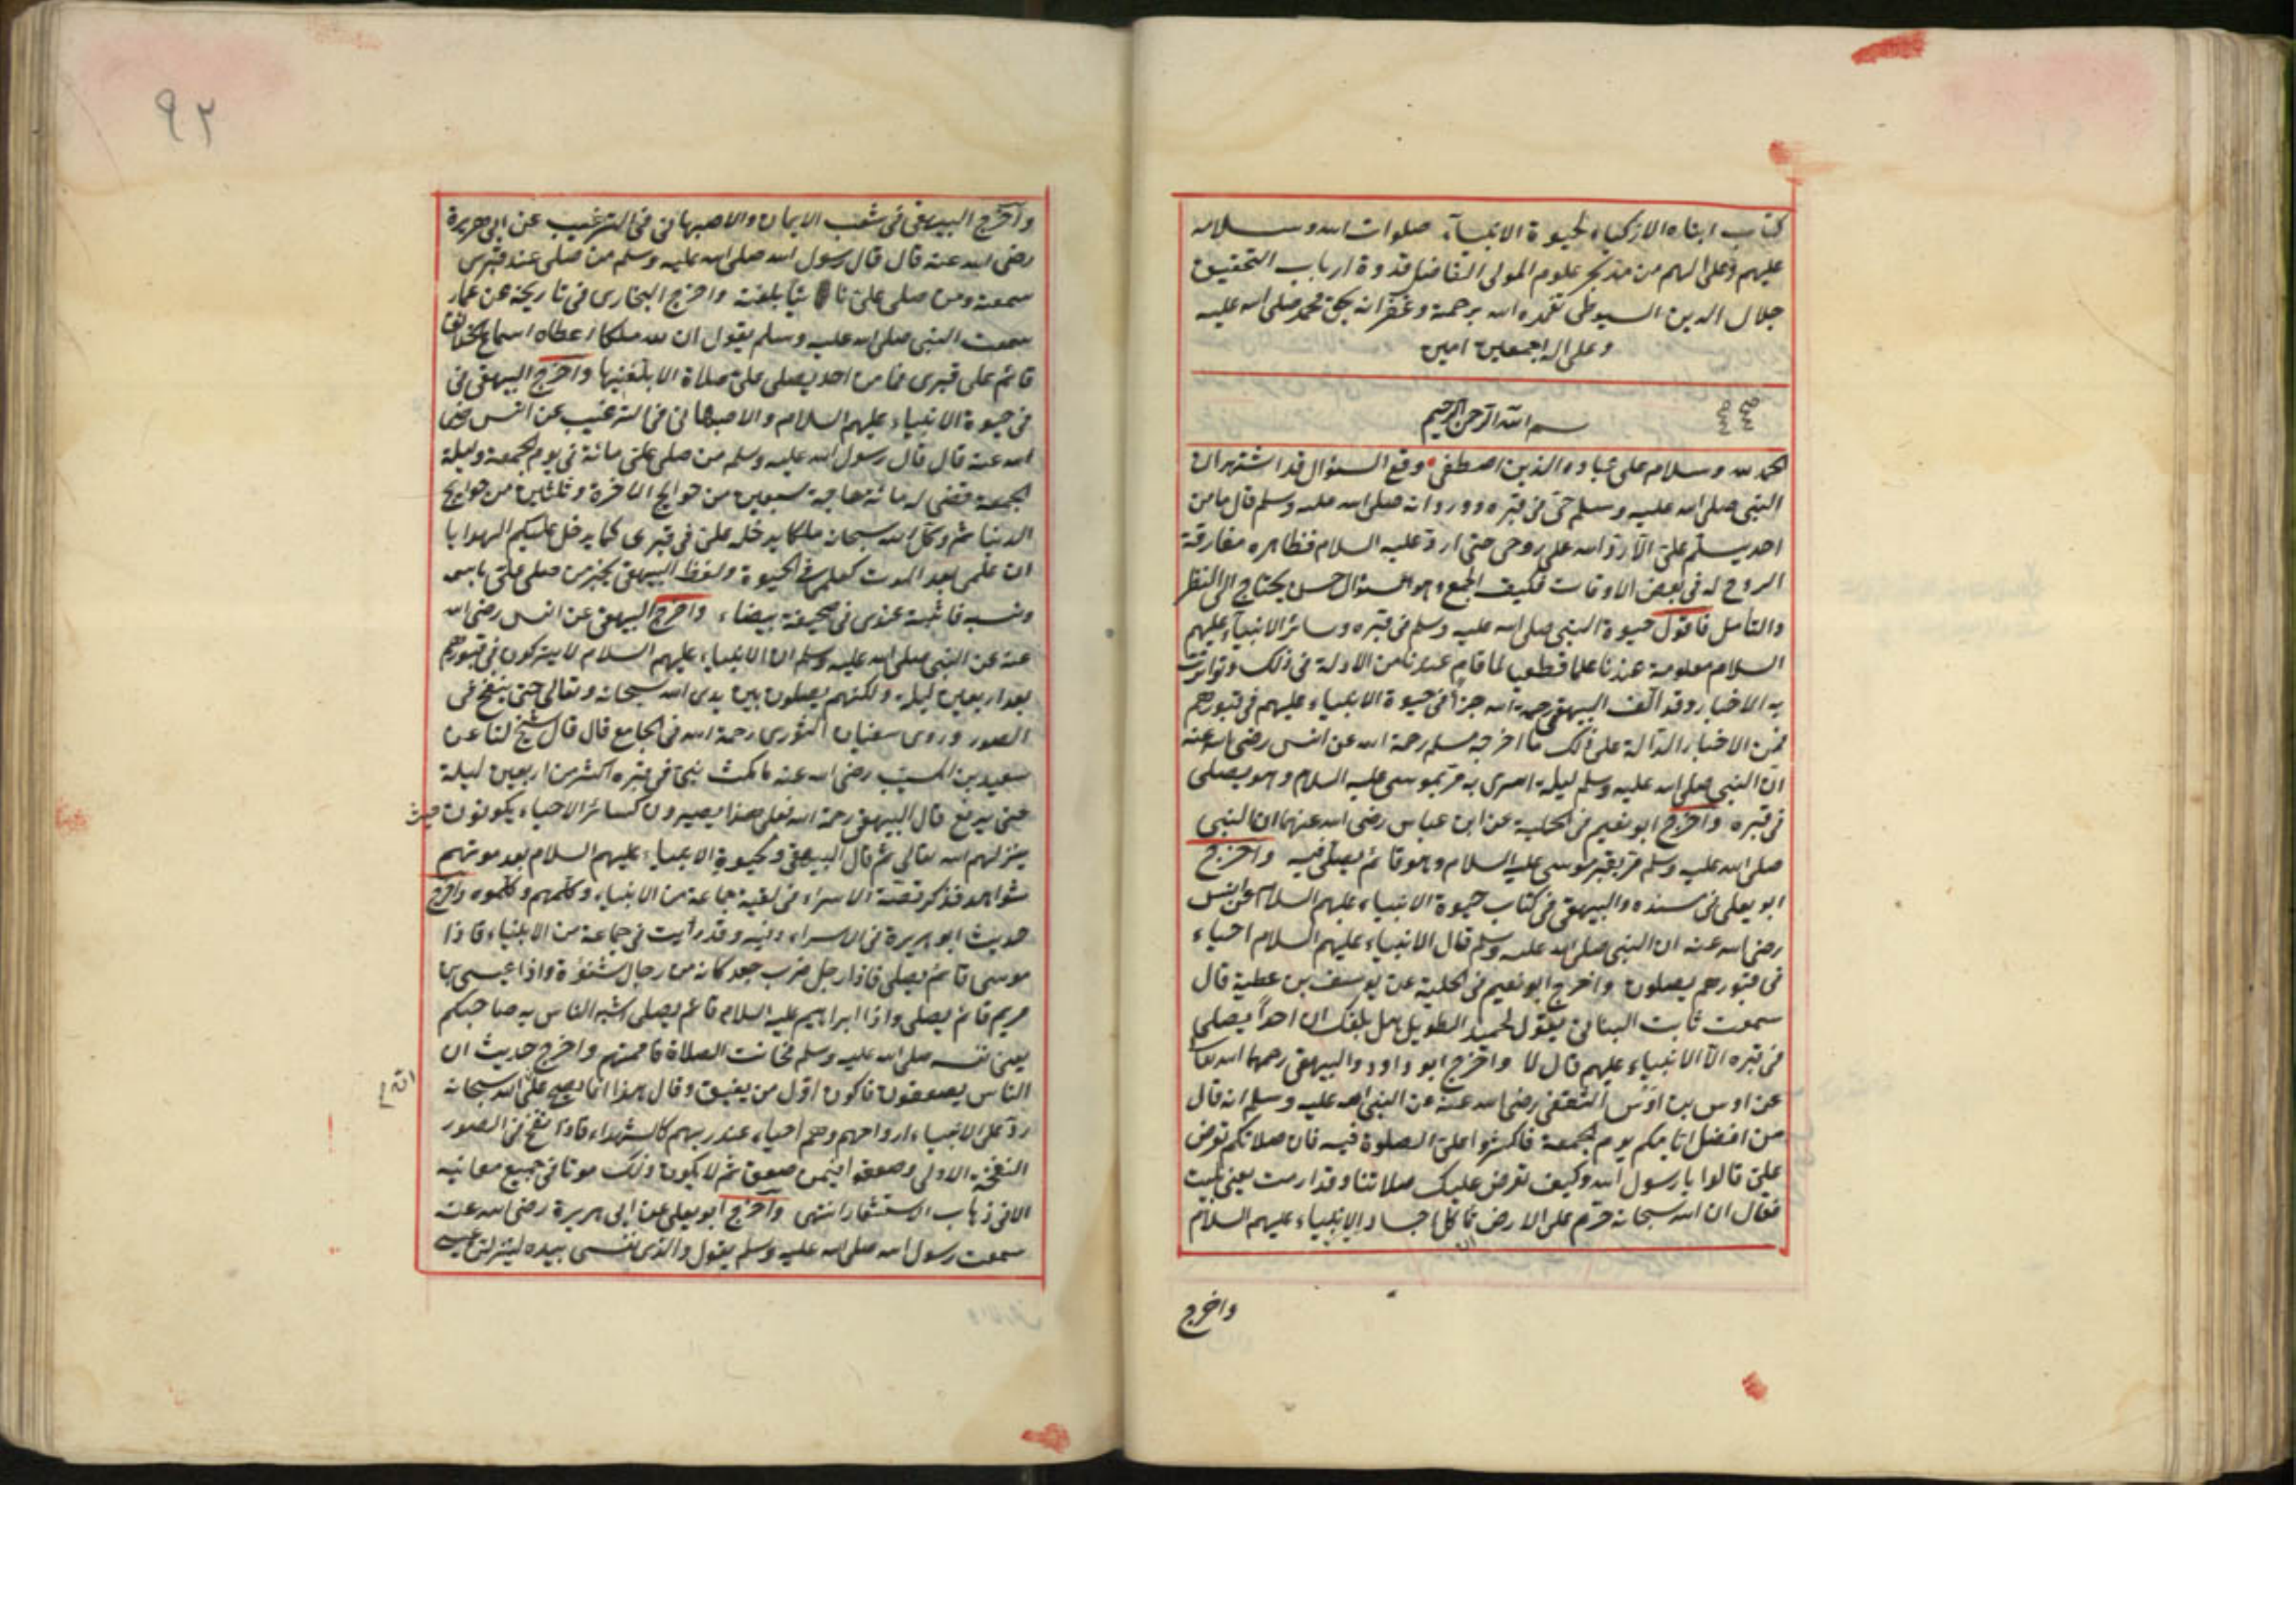 كتاب انباه الازكياء لحيوة الانبيآء صلوات الله وسلامه
عليهم وعلى الهم من بحر علوم المولى الفاضل قدوة ارباب التحقيق
جلال الدين السيوطى تغمده الله برحمته وغفرانه بحق محمد صلى الله عليه
وعلى اله اجمعين امين
بسم الله الرحمن الرحيم
الحمد لله وسلام على عباده الذين اصطفى وقع السؤال قد اشتهر ان
النبى صلى الله عليه وسلم حى فى قبره وورد انه صلى الله عليه وسلم قال ما من
احد يسلم على الا رد الله على روحى حتى ارد عليه السلام فظاهره مفارقة
الروح له فى بعض الاوقات فكيف الجمع وهو سؤال حسن يحتاج الى النظر
والتأمل فاقول حيوة النبى صلى الله عليه وسلم فى قبره وسائر الانبيآء عليهم
السلام معلومة عندنا علما قطعيا لما قام عندنا من الادلة فى ذلك وتواترت
به الاخبار وقد الف البيهقى رحمه الله جزأ فى حيوة الانبياء عليهم فى قبورهم
فمن الاخبار الدالة على ذلك ما اخرجه مسلم رحمة الله عن انس رضى الله عنه
ان النبى صلى الله عليه وسلم ليلة اسرى به مر بموسى عليه السلام وهو يصلى
فى قبره واخرج ابو نعيم فى الحلية عن ابن عباس رضى الله عنهما ان النبى
صلى الله عليه وسلم مر بقبر موسى عليه السلام وهو قائم يصلى فيه واخرج
ابو يعلى فى مسنده والبيهقى فى كتاب حيوة الانبياء عليهم السلام عن انس
رضى الله عنه ان النبى صلى الله عليه وسلم قال الانبياء عليهم السلام احياء
فى قبورهم يصلون واخرج ابو نعيم فى الحلية عن يوسف بن عطية قال
سمعت ثابت البنانى يقول لحميد الطويل هل بلغك ان احدا يصلى
فى قبره الا الانبياء عليهم قال لا واخرج ابو داود والبيهقى رحمهما الله تعا
عن اوس بن اوس الثقفى رضى الله عنه عن النبى الله عليه وسلم انه قال
من افضل ايامكم يوم الجمعة فاكثروا على الصلوة فيه فان صلاتكم تعرض
على قالوا يا رسول الله وكيف تعرض عليك صلاتنا وقد ارمت يعنى بليت
فقال ان الله سبحانه حرم على الارض تاكل اجساد الانبياء عليهم السلام
ان
واخرج
٩٢
واخرج البيهقى فى شعب الايمان والاصبهانى فى الترغيب عن ابى هريرة
رضى الله عنه قال قال رسول الله صلى الله عليه وسلم من صلى عند قبرى
سمعته ومن صلى على نائيا بلغته واخرج البخارى فى تاريخه عن عمار
سمعت النبى صلى الله عليه وسلم يقول ان لله ملكا اعطاه اسماع الخلائق
قائم على قبرى فما من احد يصلى على صلاة الا بلغنيها واخرج البيهقى فى
فى حيوة الانبياء عليهم السلام والاصبهانى فى الترغيب عن انس رضى
الله عنه قال قال رسول الله عليه وسلم من صلى على مائة فى يوم الجمعة وليلة
الجمعة قضى له مائة حاجة سبعين من حوايج الاخرة وثلثين من حوايج
الدنيا ثم وكل الله سبحانه ملكا يدخله على فى قبرى كما يدخل عليكم الهدايا
ان علمى بعد الموت كعلمى فى الحيوة ولفظ البيهقى يخبر من صلى على باسمه
ونسبه فاثبته عندى فى صحيفة بيضاء واخرج البيهقى عن انس رضى الله
عنه عن النبى صلى الله عليه وسلم ان الانبياء عليهم السلام لا يتركون فى قبورهم
بعد اربعين ليلة ولكنهم يصلون بين يدى الله سبحانه وتعالى حتى ينفخ فى
الصور وروى سفيان الثورى رحمة الله فى الجامع قال قال شيخ لنا عن
سعيد بن المسيب رضى الله عنه ما مكث نبى فى قبره اكثر من اربعين ليلة
حتى يرفع قال البيهقى رحمة الله فعلى هذا يصيرون كسائر الاحياء يكونون حيث
ينزلهم الله تعالى ثم قال البيهقى ولحيوة الانبياء عليهم السلام بعد موتهم
شواهد فذكر قصة الاسراء فى لقيه جماعة من الانبياء وكلمهم وكلموه واخرج
حديث ابو هريرة فى الاسراء وفيه وقد رأيت فى جماعة من الانبياء فاذا
موسى قائم يصلى فاذا رجل ضرب جعد كانه من رجال شنوءة واذا عيسى بن
مريم قائم يصلى واذا ابراهيم عليه السلام قائم يصلى اشبه الناس به صاحبكم
يعنى نفسه صلى الله عليه وسلم فحانت الصلاة فاممتهم واخرج حديث ان
الناس يصعقون فاكون اول من يفيق وقال هذا انما يصح على الله سبحانه
رد على الانبياء ارواحهم وهم احياء عند ربهم كالشهداء فاذا نفخ فى الصور
النفخة الاولى وصعقوا فيمن صعق ثم لا يكون ذلك موتا فى جميع معانيه
الا فى ذهاب الاستشعار انتهى واخرج ابو يعلى عن ابى هريرة رضى الله عنه
سمعت رسول الله صلى الله عليه وسلم يقول والذى نفسى بيده لينزلن عيسى